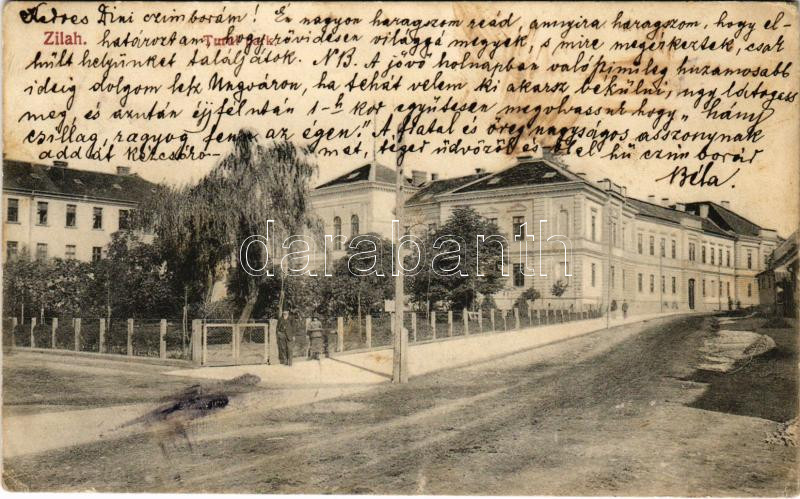 Kedves Dini czimborám! Én nagyon haragszom reád, annyira haragszom, hogy el-
Zilah.
határoztam, hogy rövidesen világgá megyek, s mire megérkeztek, csak
hült helyünket találjátok. N.B. A jövő holnapban valószinüleg huzamosabb
ideig dolgom lesz Ungváron, ha tehát velem ki akarsz békülni, ugy látogass
meg, és azután éjfél után 1-h kor együttesen megolvassuk hogy "hány
csillag ragyog fenn az égen." A fiatal és öreg nagyságos asszonynak
add át kézcsóko- mat, téged üdvözöl és ölel hű czimborád
Béla.
darabanth